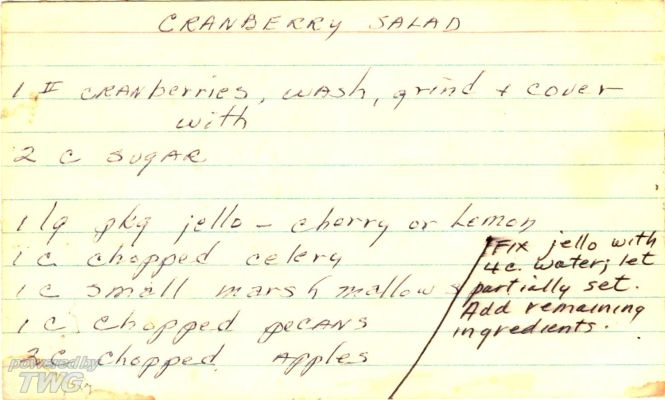 CRANBERRY SALAD
1 # CRANberries, wash, grind + cover
with
2 C SUGAR
1 lg pkg jello - cherry or Lemon
1 C chopped celery
1 C small marshmallows
1 C chopped peCANS
3 C chopped Apples
FIX jello with
4 c. water; let
partially set.
Add remaining
ingredients.
powered by
TWG